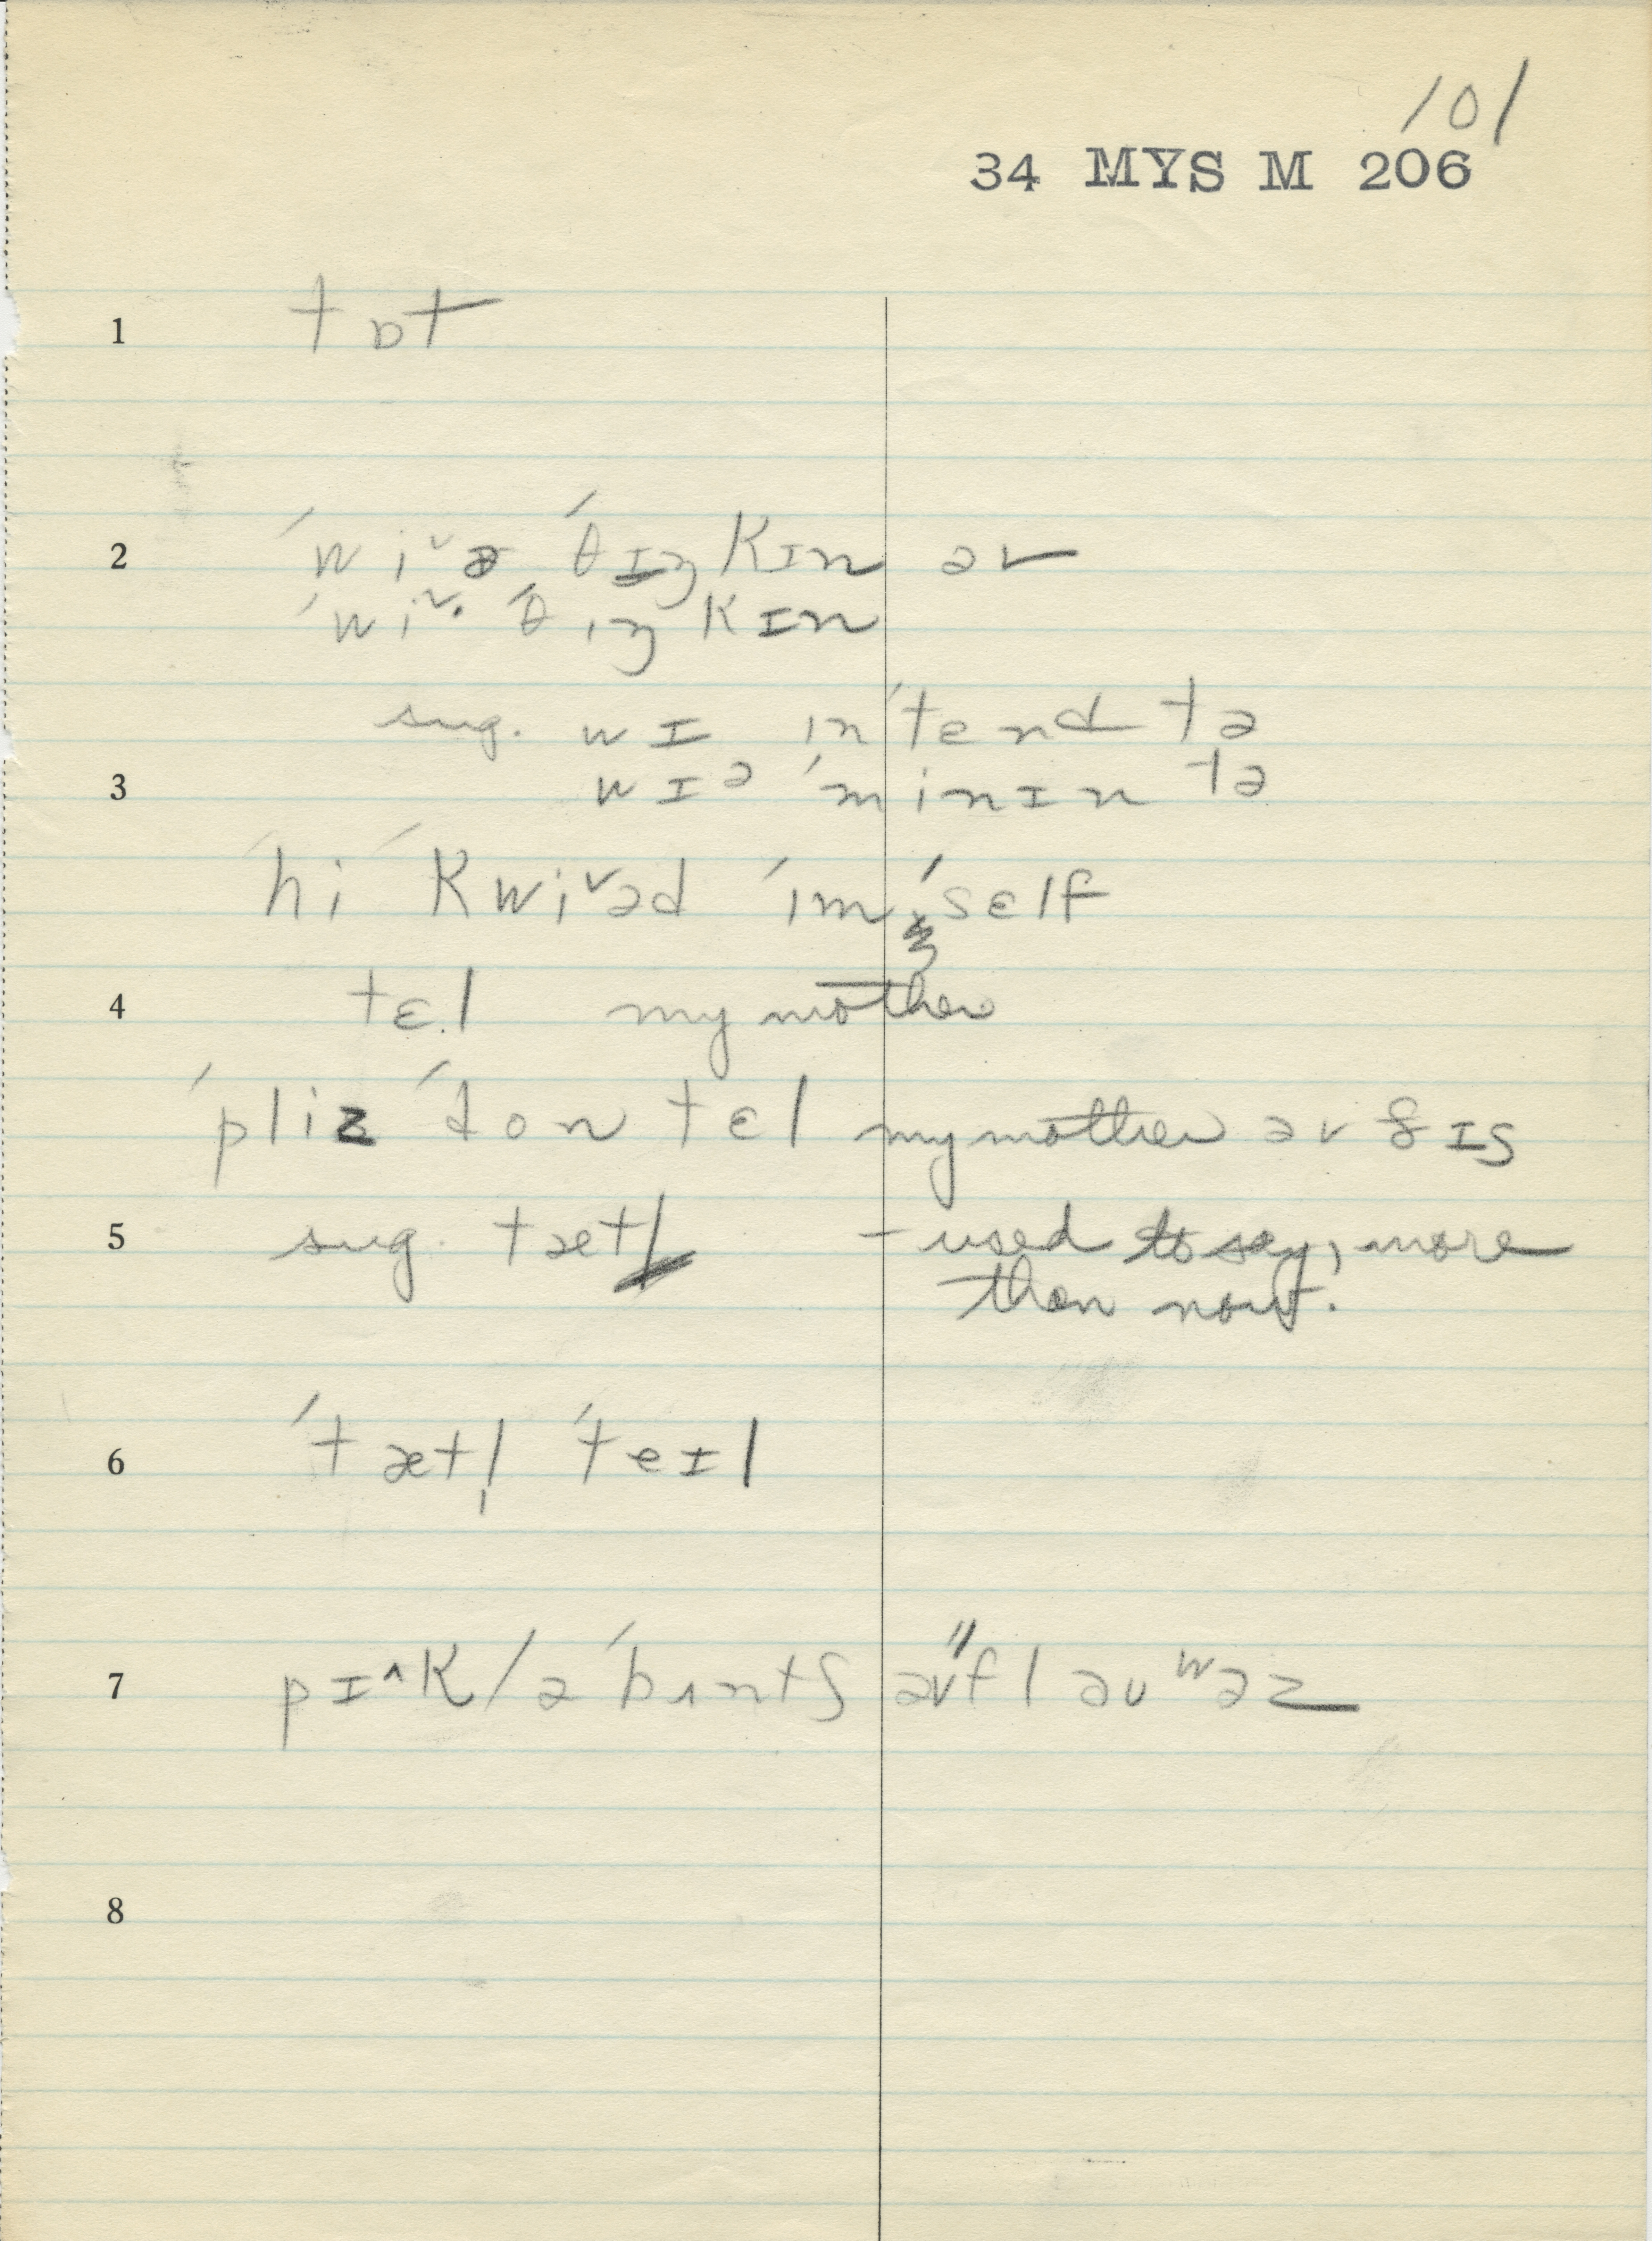 101
34 MYS M 206
1 tɒt
2 ˈwi˅ə ˈθɪŋkɪn əv
ˈwi˅· ˈθɪŋkɪn
sug. wɪ ɪnˈtend tə
3 wɪə ˈminɪn tə
ˈhi ˈkwi˅əd ˈɪmˈsɛlf
4 tɛl my mother
ˈpliz ˈdon tɛl my mother əv ðɪs
5 sug. tætl - used to say, more
than now.
6 ˈtætl̩ ˈteɪl
7 pɪ^k / ə ˈbʌntʃ əv "flaʊʷəz
8